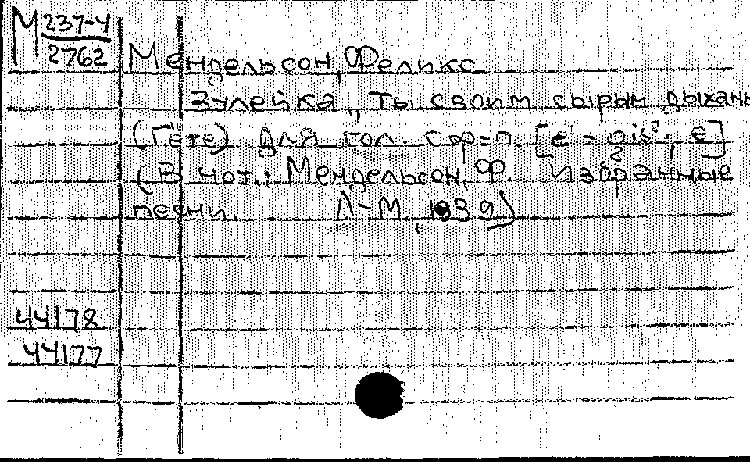 М 237-4
2762
Мендельсон, Феликс
Зулейка, "Ты своим сырым дыхань
(Гете) Для гол. с ф=п. [e' - gis²; E]
(В нот.: Мендельсон, Ф. Избранные
песни. Л-М, 1939)
44178
44177